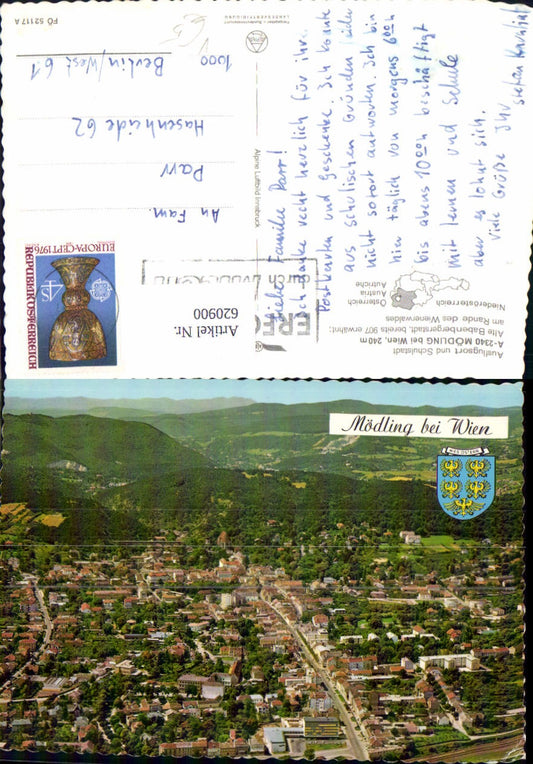 Ausflugsort und Schulstadt
A-2340 MÖDLING bei Wien, 240 m
Alte Babenbergerstadt, bereits 907 erwähnt;
am Rande des Wienerwaldes
Niederösterreich
Österreich
Austria
Autriche
Liebe Familie Parr!
Ich danke recht herzlich für ihre
Postkarten und Geschenke. Ich konnte
aus schulischen Gründen leider
nicht sofort antworten. Ich bin
hier täglich von morgens 6 00 h
bis abens 10 00 h beschäftigt
mit lernen und Schule
aber es lohnt sich.
Viele Grüße Ihr
Alpine Luftbild Innsbruck
REPUBLIK ÖSTERREICH
EUROPA-CEPT 1976
S4
An Fam.
Parr
Hasenheide 62
1000 Berlin/West 61
PÖ 52117 A
Artikel Nr.
620900
Mödling bei Wien